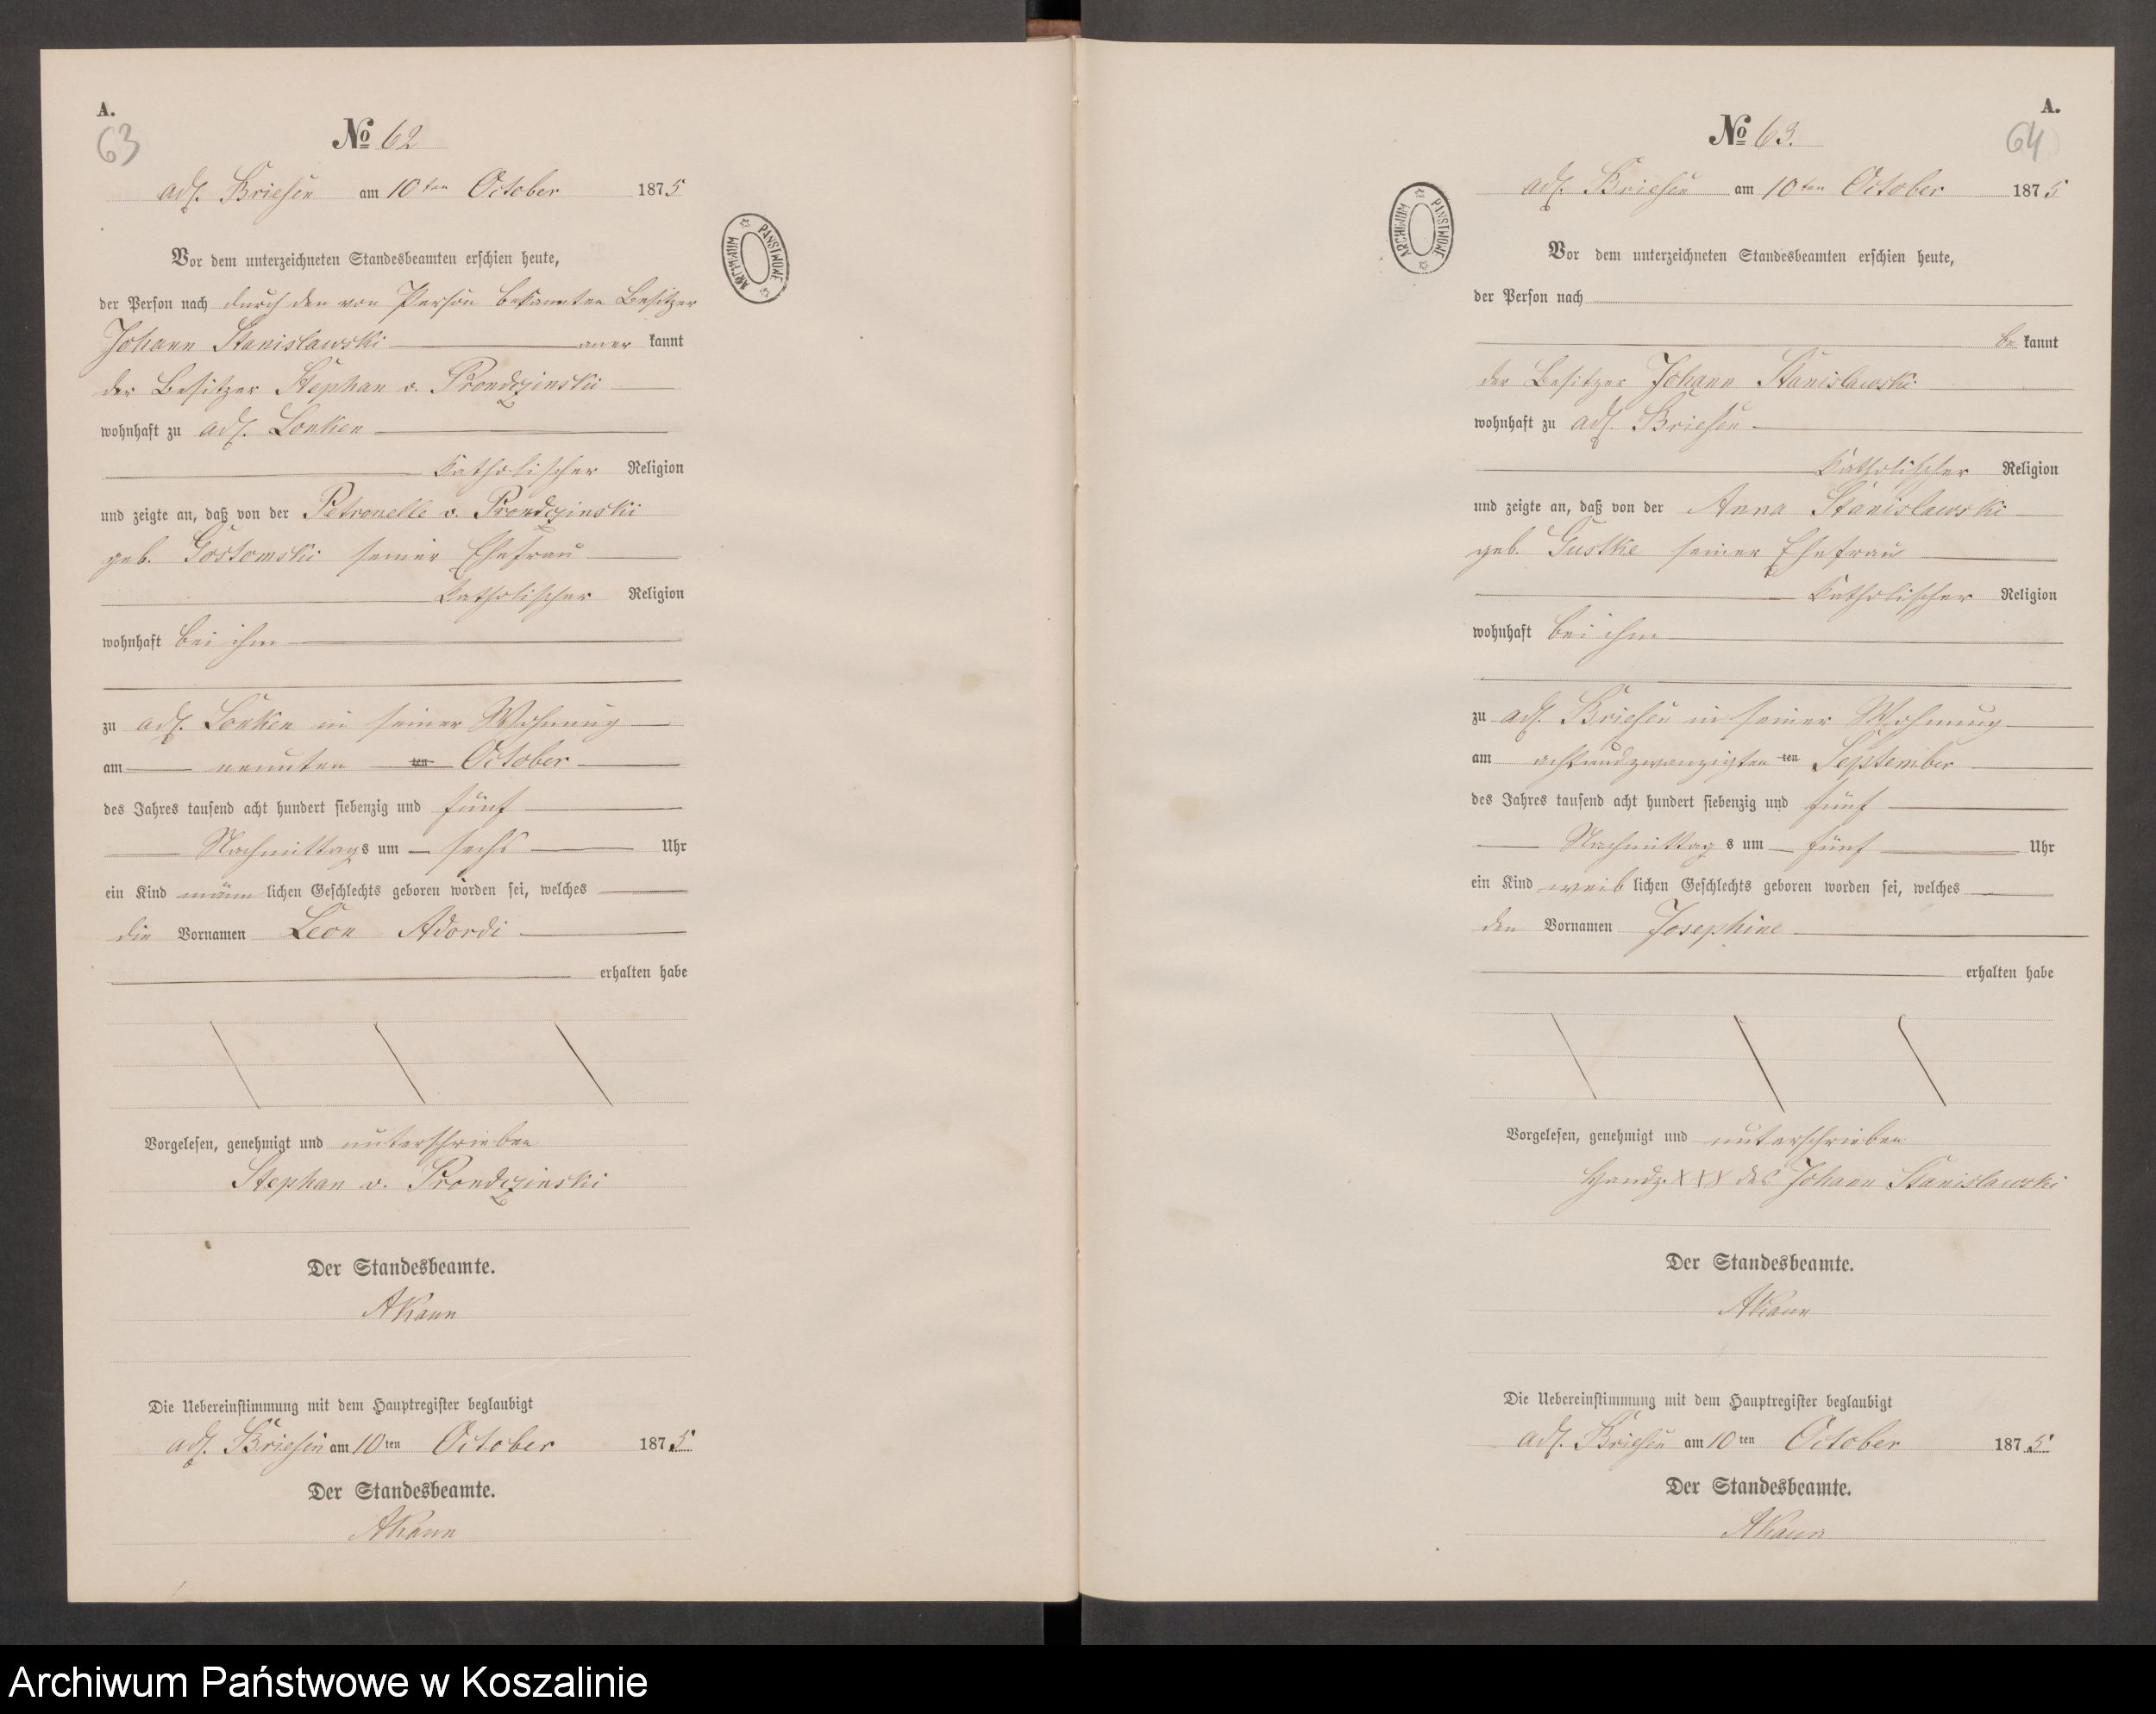 A.
63
No 62
adl. Briesen am 10ten October 1875
ARCHIWUM PAŃSTWOWE
Vor dem unterzeichneten Standesbeamten erschien heute,
der Person nach durch den von Person bekannten Besitzer
Johann Stanislawski aner kannt
der Besitzer Stephan v. Prondzinski
wohnhaft zu adl. Lonken
Katholischer Religion
und zeigte an, daß von der Petronelle v. Prondzinski
geb. Gostomski seiner Ehefrau
Katholischer Religion
wohnhaft bei ihm
zu adl. Lonken in seiner Wohnung
am neunten ten October
des Jahres tausend acht hundert siebenzig und fünf
Nachmittags um sechs Uhr
ein Kind männlichen Geschlechts geboren worden sei, welches
die Vornamen Leon Adordi
erhalten habe
Vorgelesen, genehmigt und unterschrieben
Stephan v. Prondzinski
Der Standesbeamte.
AKann
Die Uebereinstimmung mit dem Hauptregister beglaubigt
adl. Briesen am 10ten October 1875
Der Standesbeamte.
AKann
A.
64
No 63.
adl. Briesen am 10ten October 1875
ARCHIWUM PAŃSTWOWE
Vor dem unterzeichneten Standesbeamten erschien heute,
der Person nach
be kannt
der Besitzer Johann Stanislawski
wohnhaft zu adl. Briesen
Katholischer Religion
und zeigte an, daß von der Anna Stanislawski
geb. Gustke seiner Ehefrau
Katholischer Religion
wohnhaft bei ihm
zu adl. Briesen in seiner Wohnung
am achtundzwanzigsten ten September
des Jahres tausend acht hundert siebenzig und fünf
Nachmittags um fünf Uhr
ein Kind weiblichen Geschlechts geboren worden sei, welches
den Vornamen Josephine
erhalten habe
Vorgelesen, genehmigt und unterschrieben
Handz. XXX des Johann Stanislawski
Der Standesbeamte.
AKann
Die Uebereinstimmung mit dem Hauptregister beglaubigt
adl. Briesen am 10ten October 1875
Der Standesbeamte.
AKann
Archiwum Państwowe w Koszalinie